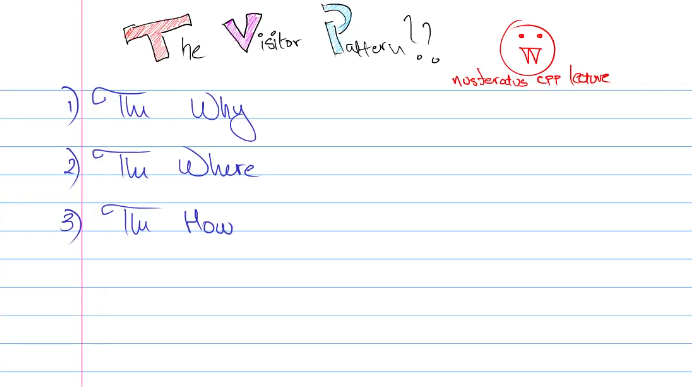 The Visitor Pattern??
nusferatus cpp lecture
1) The Why
2) The Where
3) The How